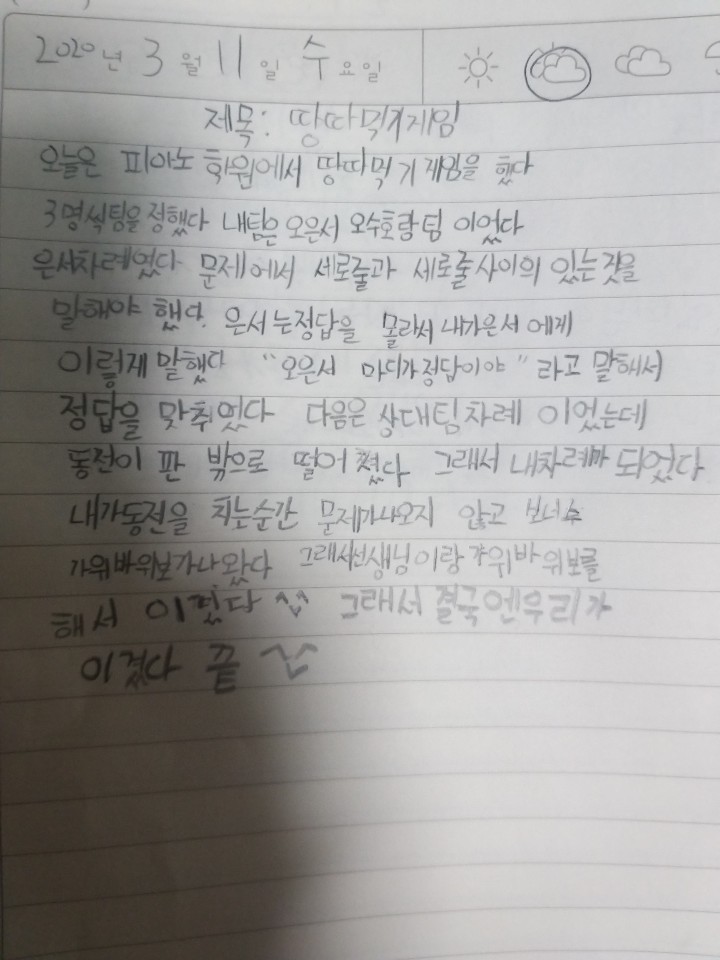 2020년 3월 11일 수요일
제목: 땅따먹기게임
오늘은 피아노 학원에서 땅따먹기 게임을 했다
3명씩팀을 정했다 내팀은 오은서 오수호랑 팀 이었다
은서차례였다 문제에서 세로줄과 세로줄사이의 있는것을
말해야 했다. 은서는정답을 몰라서 내가은서에게
이렇게 말했다 "오은서 마디가정답이야" 라고 말해서
정답을 맞추었다 다음은 상대팀차례 이었는데
동전이 판 밖으로 떨어졌다 그래서 내차례가 되었다
내가동전을 치는순간 문제가나오지 않고 보너스
가위바위보가나왔다 그래서선생님이랑 가위바위보를
해서 이겼다 ^^ 그래서 결국엔우리가
이겼다 끝 ^^